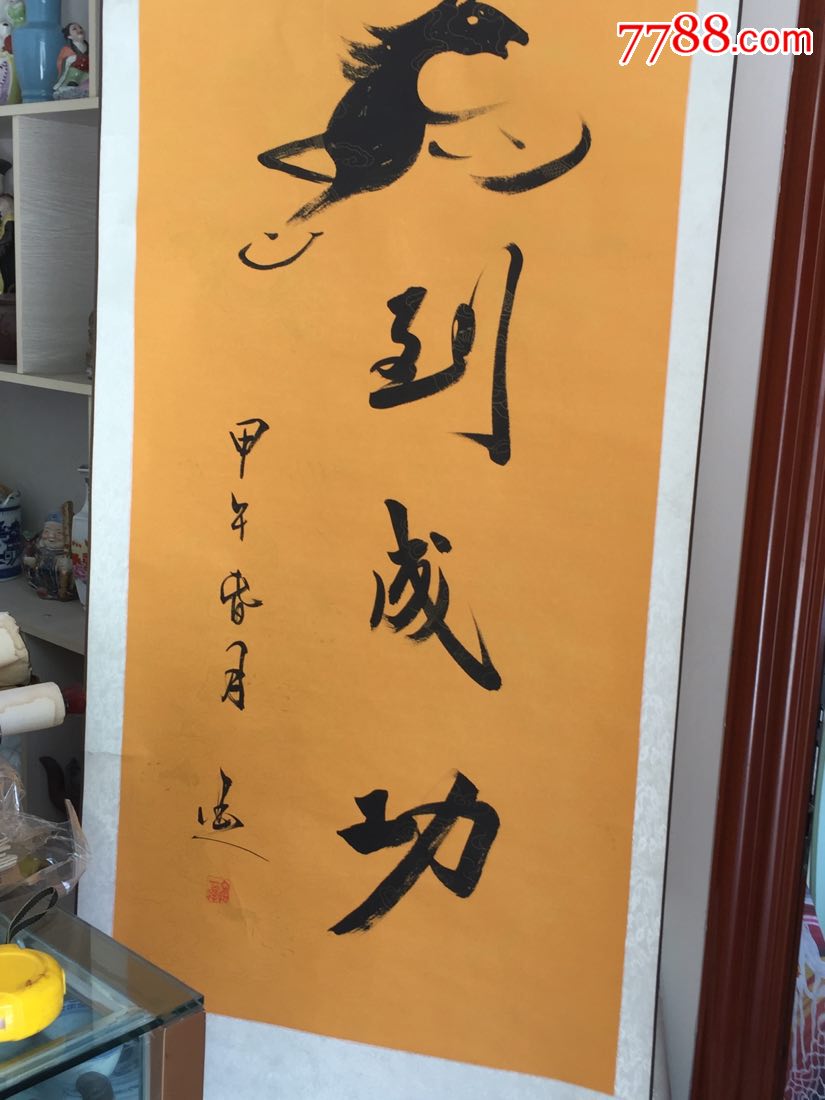 7788.com
到成功
甲午春月